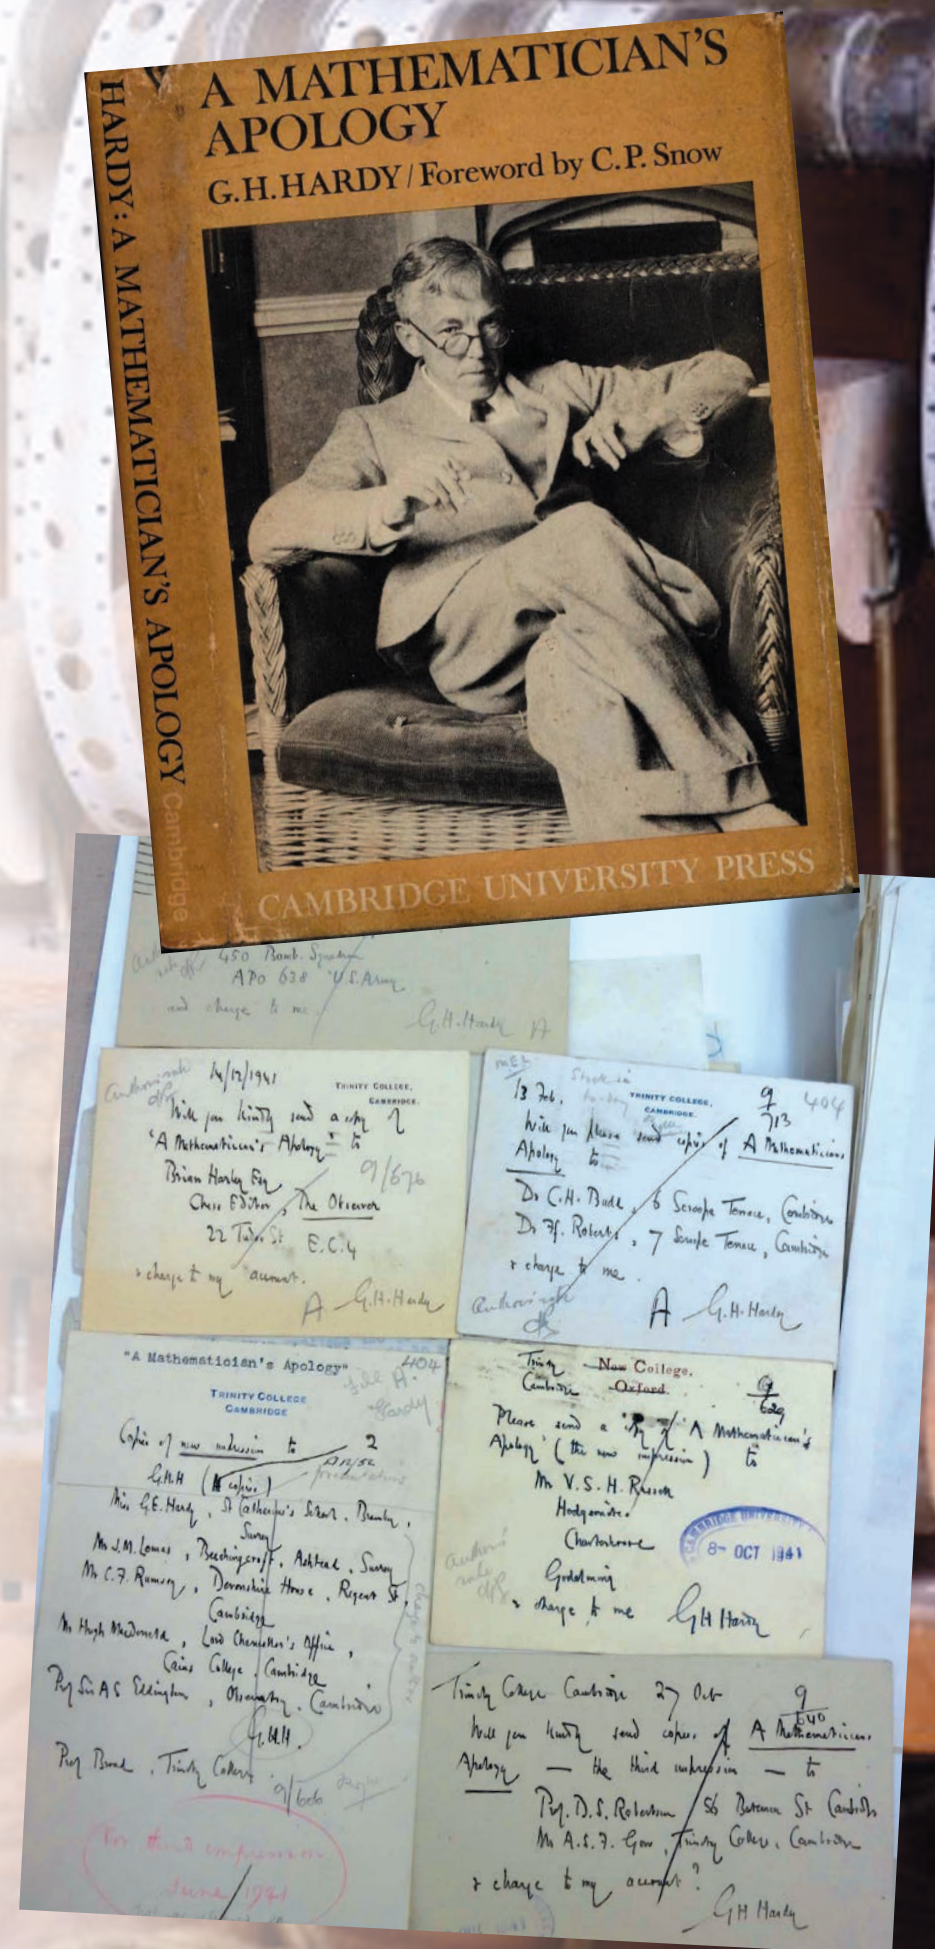 A MATHEMATICIAN'S
APOLOGY
G.H.HARDY/Foreword by C.P. Snow
HARDY: A MATHEMATICIAN'S APOLOGY Cambridge
CAMBRIDGE UNIVERSITY PRESS
450 Bomb. Squadron
APO 638 U.S. Army
and charge to me.
G.H. Hardy A
14/12/1941
TRINITY COLLEGE,
CAMBRIDGE.
Will you kindly send a copy of
'A Mathematician's Apology' to
9/676
Brian Harley Esq
Chess Editor, The Observer
22 Tudor St E.C.4
& charge to my account.
A G.H. Hardy
13 Feb.
TRINITY COLLEGE,
CAMBRIDGE.
9/713 404
Will you please send copies of A Mathematicians
Apology to
Dr C.H. Budd, 6 Scroope Terrace, Cambridge
Dr Ff. Roberts, 7 Scroope Terrace, Cambridge
& charge to me.
A G.H. Hardy
"A Mathematician's Apology" 404
Hardy
TRINITY COLLEGE
CAMBRIDGE
Copies of new impression to 2
G.H.H ( copies)
Miss G.E. Hardy, St Catherine's School, Bramley,
Surrey
Mr J.M. Lomas, Beechingcroft, Ashtead, Surrey
Mr C.F. Rumsey, Devonshire House, Regent St,
Cambridge
Mr Hugh MacDonald, Lord Chancellor's Office,
Caius College, Cambridge
Prof Sir A S Eddington, Observatory, Cambridge
G.H.H.
Prof Broad, Trinity College
9/606
For third impression
June 1941
Trinity New College,
Cambridge Oxford
9/629
Please send a copy of 'A Mathematician's
Apology' (the new impression) to
Mr V.S.H. Russell
Hodgsonites
Charterhouse
Godalming
& charge to me
CAMBRIDGE UNIVERSITY
8- OCT 1941
author's
rate
GH Hardy
Trinity College Cambridge 27 Oct 9/640
Will you kindly send copies of A Mathematicians
Apology — the third impression — to
Prof. D.S. Robertson 56 Bateman St Cambridge
Mr A.S.F. Gow, Trinity College, Cambridge
& charge to my account?
GH Hardy